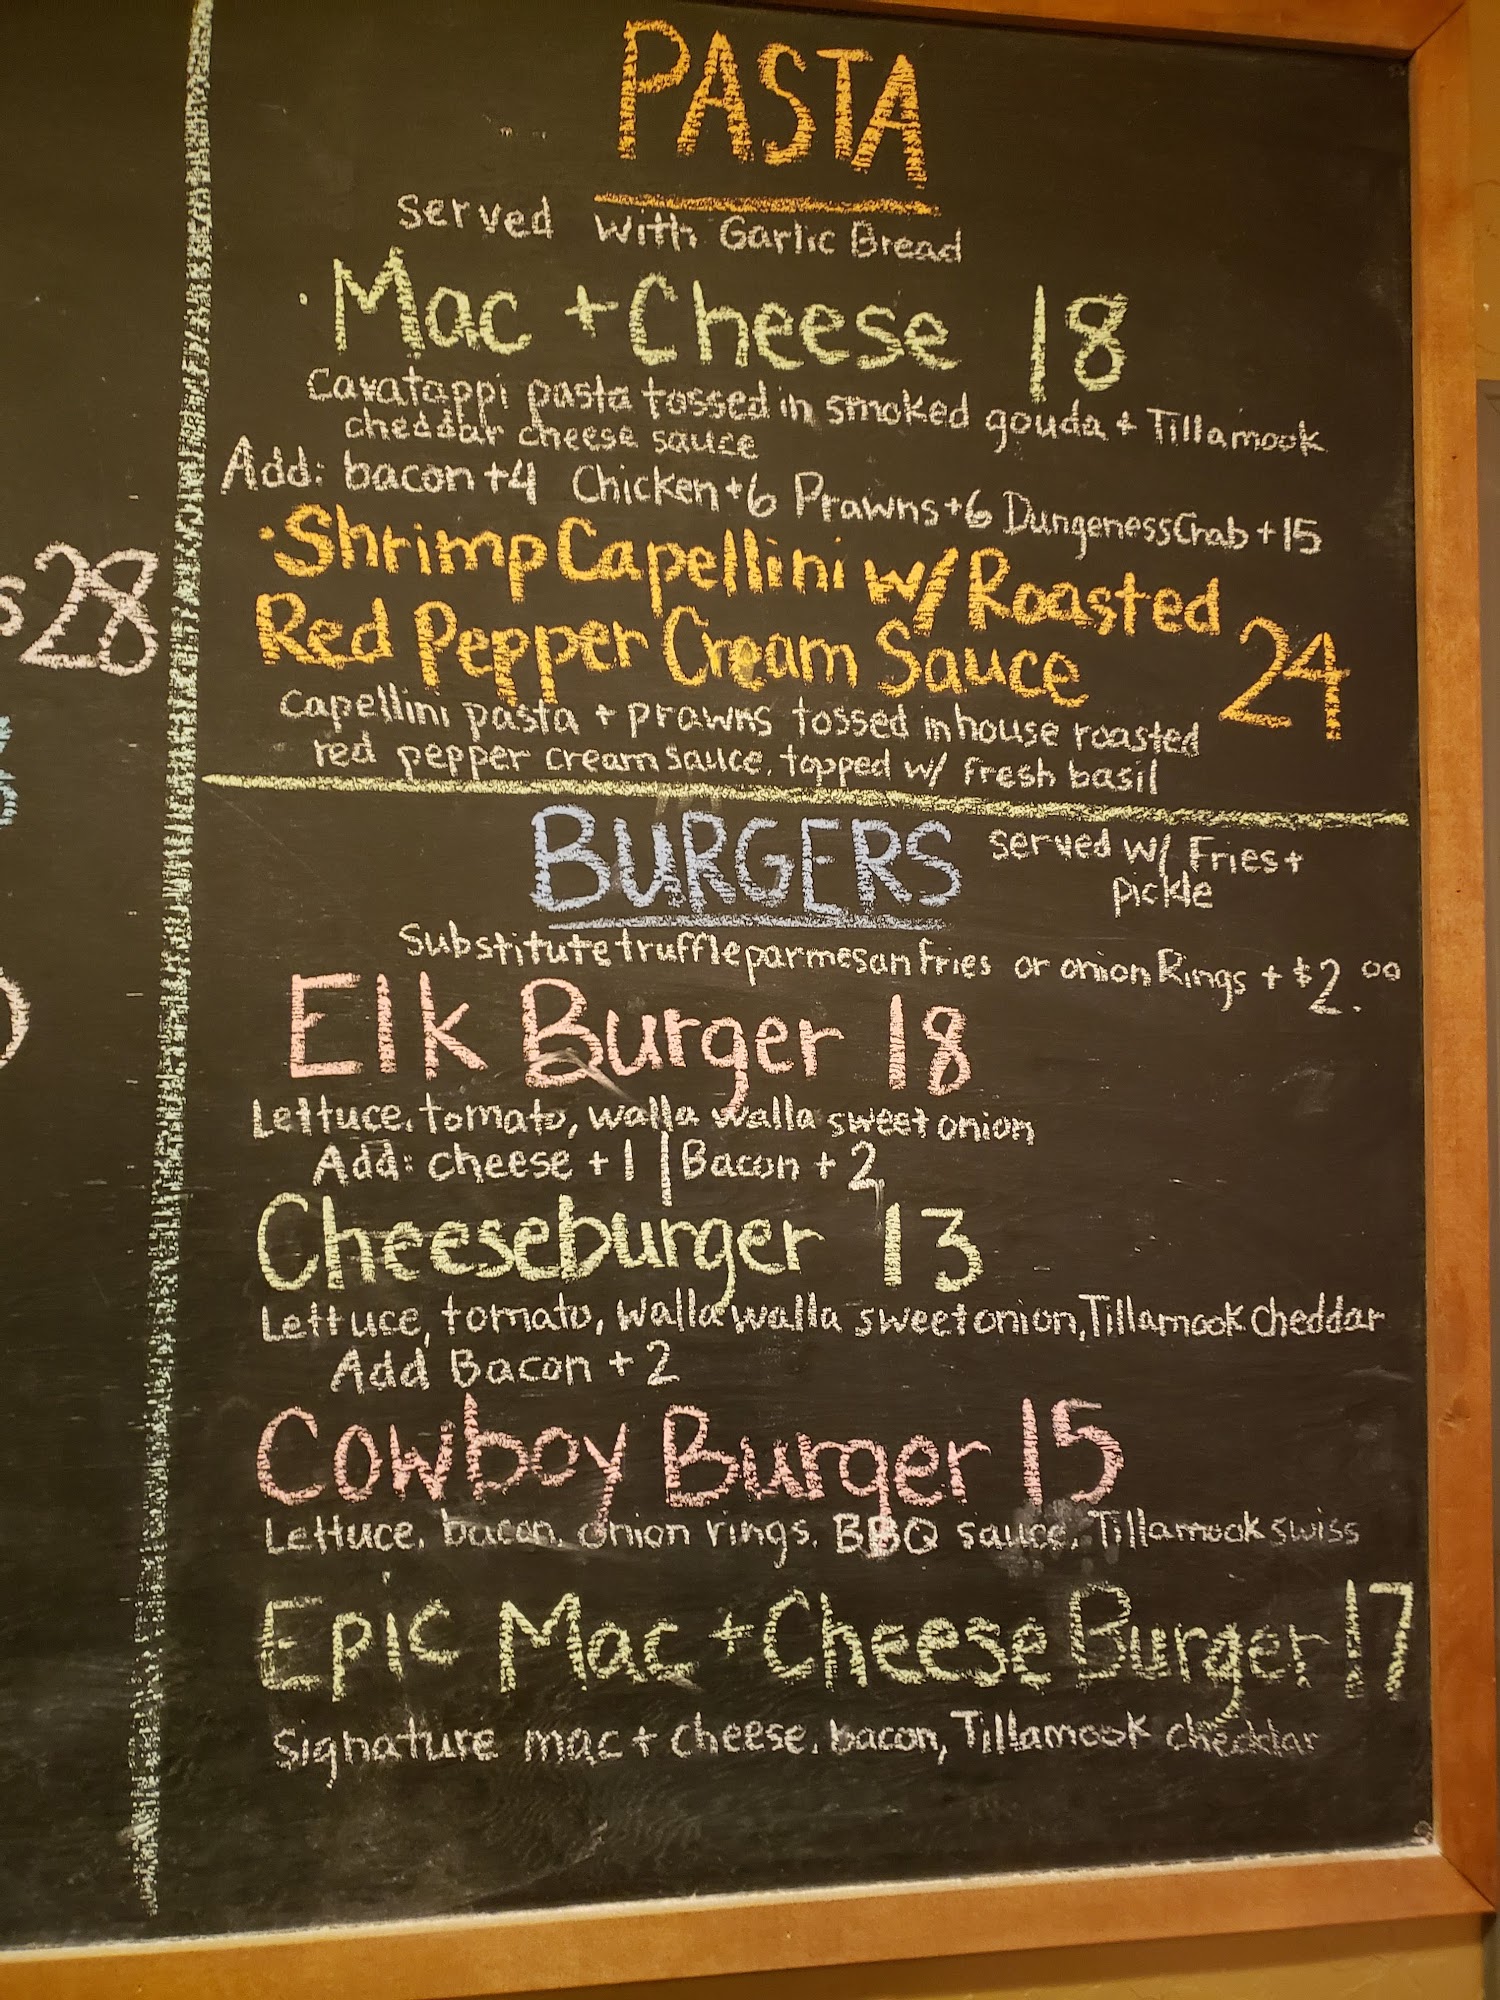 PASTA
served with Garlic Bread
· Mac + Cheese 18
Cavatappi pasta tossed in smoked gouda + Tillamook
cheddar cheese sauce
Add: bacon +4 Chicken +6 Prawns +6 Dungeness Crab +15
· Shrimp Capellini w/ Roasted
Red Pepper Cream Sauce 24
capellini pasta + prawns tossed in house roasted
red pepper cream sauce. topped w/ fresh basil
BURGERS served w/ Fries +
pickle
Substitute truffle parmesan fries or onion Rings + $2.00
Elk Burger 18
Lettuce, tomato, walla walla sweet onion
Add: cheese +1 | Bacon + 2
Cheeseburger 13
Lettuce, tomato, walla walla sweet onion, Tillamook cheddar
Add Bacon + 2
Cowboy Burger 15
Lettuce, bacon, onion rings, BBQ sauce, Tillamook swiss
Epic Mac + Cheese Burger 17
signature mac + cheese, bacon, Tillamook cheddar
s 28